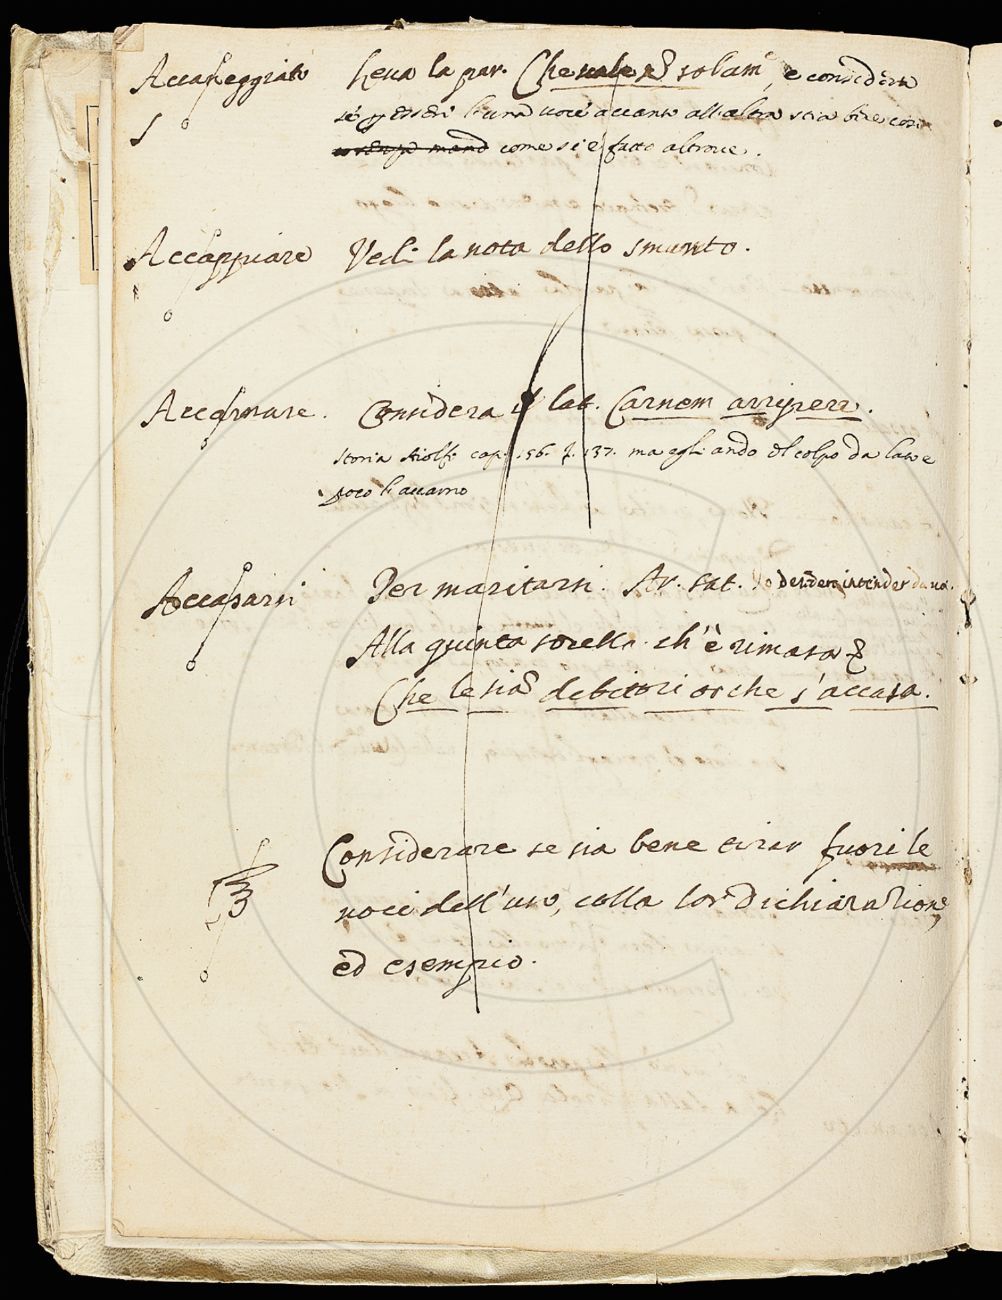 Accaneggiato leva la par. Che vale solam, e considera
se essendi l'una voce accanto all'altra stia bene così
come si è fatto altrove.
Accappiare Vedi la nota dello smunto.
Accarnare. Considera il lat. Carnem arripere.
Storia Aiolf. cap. 156. f. 137. ma egli andò il colpo da lato e
poco l'accarnò
Accasarsi Per maritarsi. Ar. sat. Io desidero intender da voi.
Alla quinta sorella ch'è rimasa
Che le siā debitori or che s'accasa.
Considerare se sia bene tirar fuori le
voci dell'uso, colla lor dichiarazione
ed esempio.